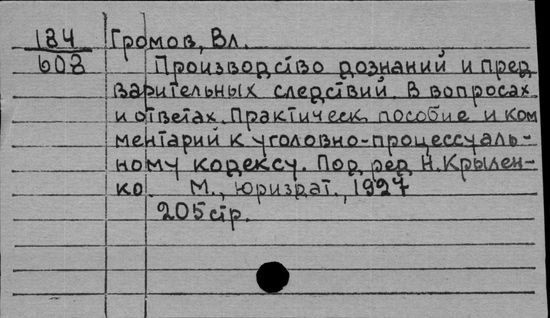 184 Громов, Вл.
608 Производство дознаний и пред
варительных следствий. В вопросах
и ответах. Практическ. пособие и ком
ментарий к уголовно-процессуаль-
ному кодексу. Под ред. Н. Крылен-
ко М., Юриздат., 1927
205 стр.